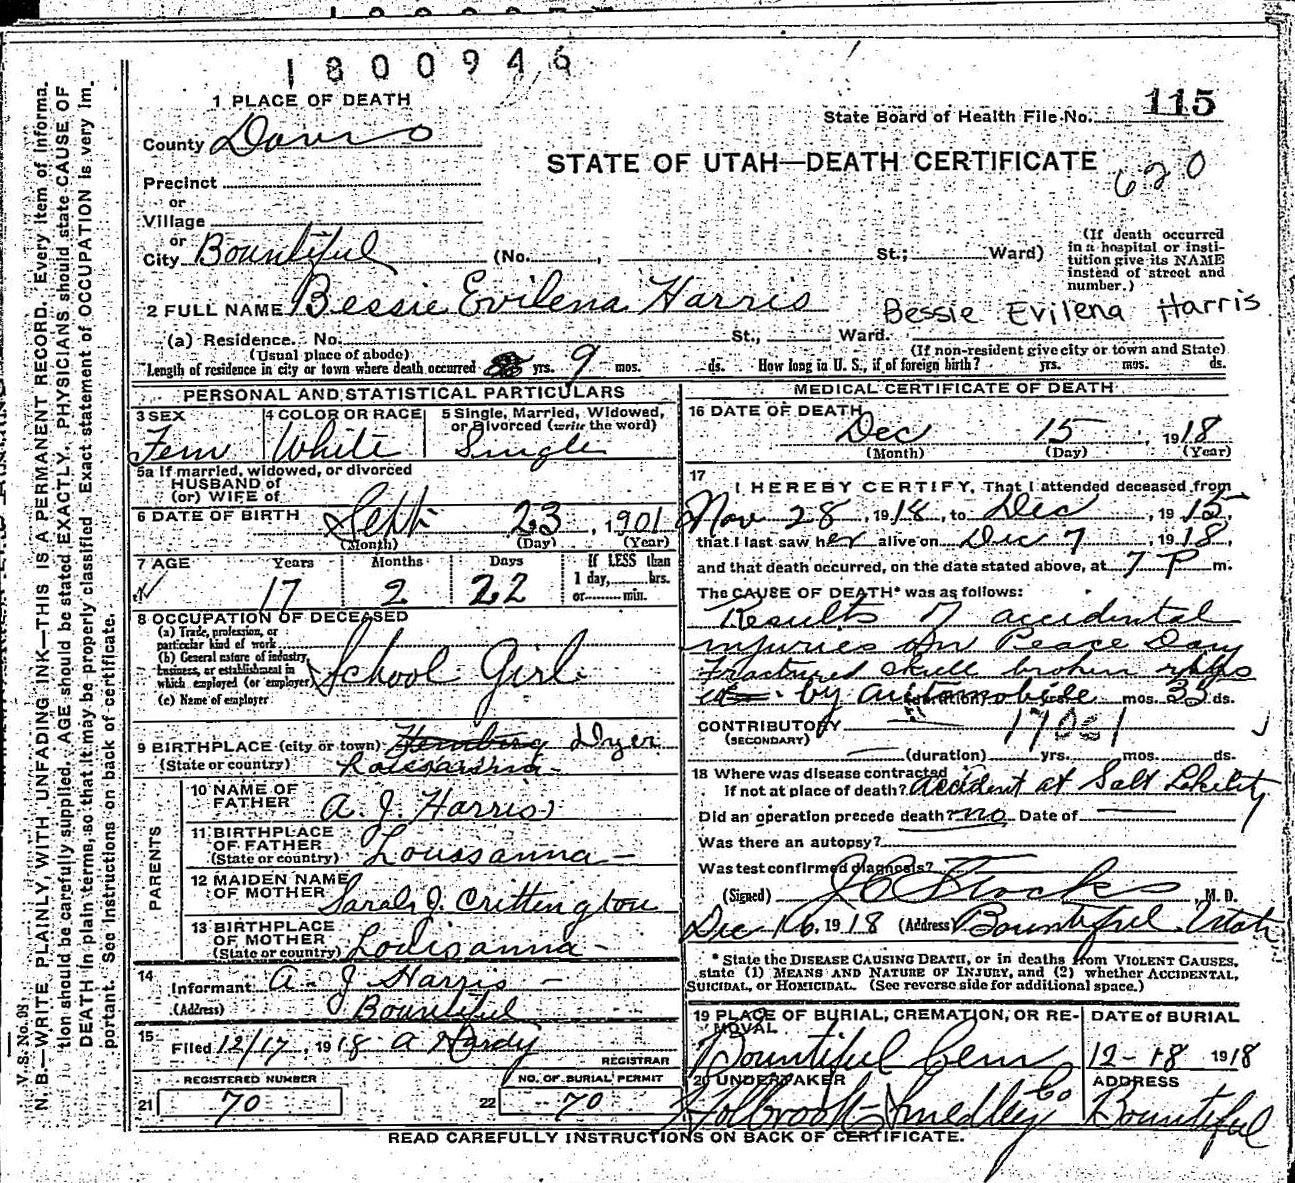 1800946
1 PLACE OF DEATH
State Board of Health File No. 115
County Davis
STATE OF UTAH—DEATH CERTIFICATE
620
Precinct
or
Village
or
City Bountiful (No. , St.; Ward)
(If death occurred
in a hospital or insti-
tution give its NAME
instead of street and
number.)
2 FULL NAME Bessie Evilena Harris
Bessie Evilena Harris
(a) Residence. No. St., Ward.
(Usual place of abode) (If non-resident give city or town and State)
Length of residence in city or town where death occurred yrs. 9 mos. ds. How long in U. S., if of foreign birth? yrs. mos. ds.
PERSONAL AND STATISTICAL PARTICULARS
3 SEX 4 COLOR OR RACE 5 Single, Married, Widowed,
or Divorced (write the word)
Fem White Single
5a If married, widowed, or divorced
HUSBAND of
(or) WIFE of
6 DATE OF BIRTH Sept 23, 1901
(Month) (Day) (Year)
7 AGE Years Months Days If LESS than
1 day, hrs.
or min.
17 2 22
8 OCCUPATION OF DECEASED
(a) Trade, profession, or
particular kind of work
(b) General nature of industry,
business, or establishment in
which employed (or employer)
School Girl
(c) Name of employer
9 BIRTHPLACE (city or town) Dyer
(State or country)
PARENTS
10 NAME OF
FATHER A. J. Harris
11 BIRTHPLACE
OF FATHER
(State or country) Loussanna
12 MAIDEN NAME
OF MOTHER Sarah J. Crittington
13 BIRTHPLACE
OF MOTHER
(State or country) Louisanna
14
Informant A. J Harris
(Address) Bountiful
15
Filed 12/17, 1918 A Hardy
REGISTRAR
REGISTERED NUMBER NO. OF BURIAL PERMIT
21 70 22 70
MEDICAL CERTIFICATE OF DEATH
16 DATE OF DEATH
Dec 15, 1918
(Month) (Day) (Year)
17
I HEREBY CERTIFY, That I attended deceased from
Nov 28, 1918, to Dec, 1915,
that I last saw her alive on Dec 7, 1918,
and that death occurred, on the date stated above, at 7 P m.
The CAUSE OF DEATH* was as follows:
Results of accidental
injuries on Peace Day
Fractured skull broken
by automobile (duration) mos. ds.
CONTRIBUTORY
(SECONDARY)
(duration) yrs. mos. ds.
18 Where was disease contracted
if not at place of death? accident at Salt Lake City
Did an operation precede death? no Date of
Was there an autopsy?
Was test confirmed diagnosis?
(Signed) J C Stocks, M. D.
Dec 16, 1918 (Address) Bountiful Utah
* State the DISEASE CAUSING DEATH, or in deaths from VIOLENT CAUSES,
state (1) MEANS AND NATURE OF INJURY, and (2) whether ACCIDENTAL,
SUICIDAL, or HOMICIDAL. (See reverse side for additional space.)
19 PLACE OF BURIAL, CREMATION, OR RE-
MOVAL
DATE of BURIAL
Bountiful Cem 12-18 1918
20 UNDERTAKER ADDRESS
Holbrook-Smedley Co Bountiful
READ CAREFULLY INSTRUCTIONS ON BACK OF CERTIFICATE.
V. S. No. 95
N. B.—WRITE PLAINLY, WITH UNFADING INK—THIS IS A PERMANENT RECORD. Every item of informa-
tion should be carefully supplied. AGE should be stated EXACTLY. PHYSICIANS should state CAUSE OF
DEATH in plain terms, so that it may be properly classified. Exact statement of OCCUPATION is very im-
portant. See instructions on back of certificate.